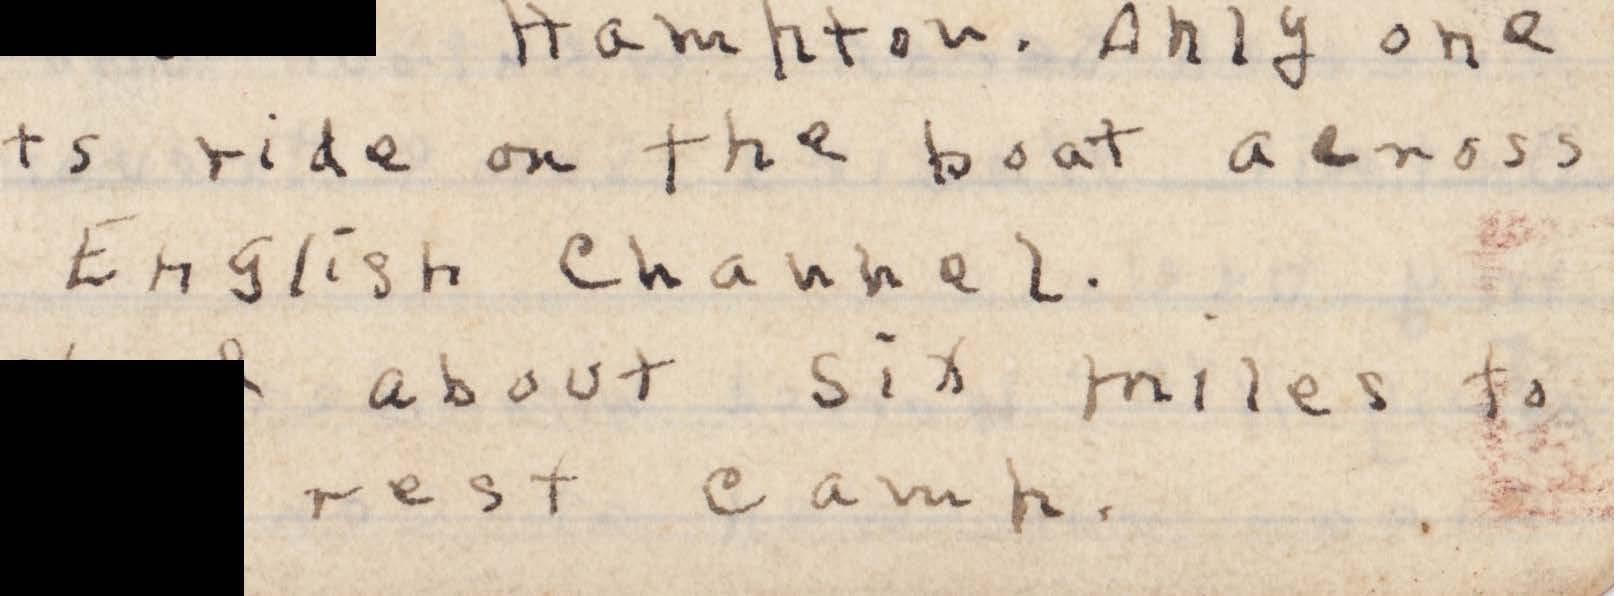 Hampton. Only one
ts ride on the boat across
English Channel.
about six miles to
rest camp.